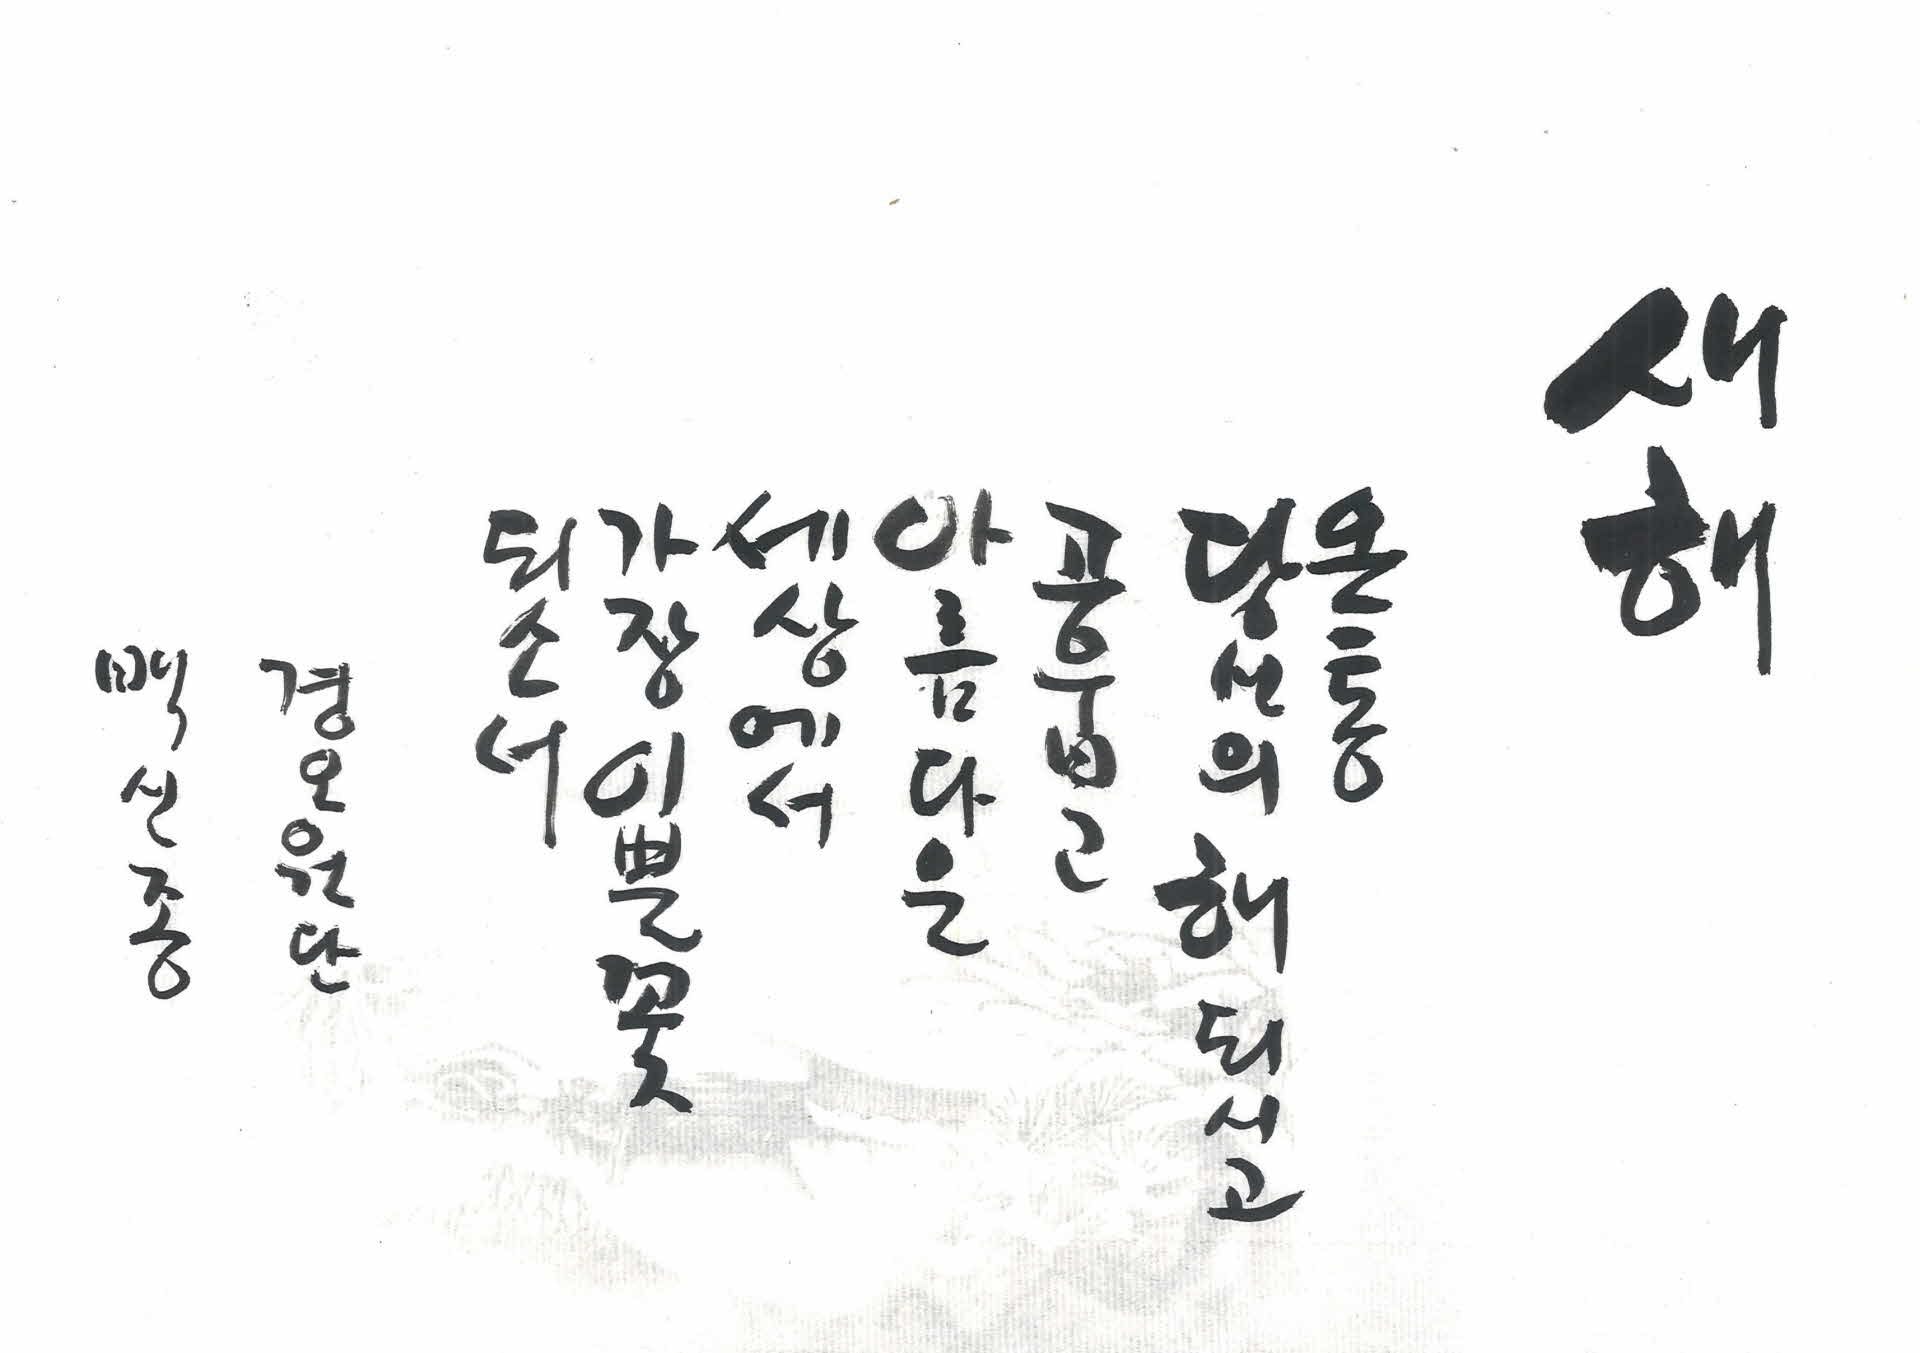 새해
온통
당신의 해 되시고
아름다운
세상에서
가장 이쁜 꽃
되소서
경오 원단
백신종